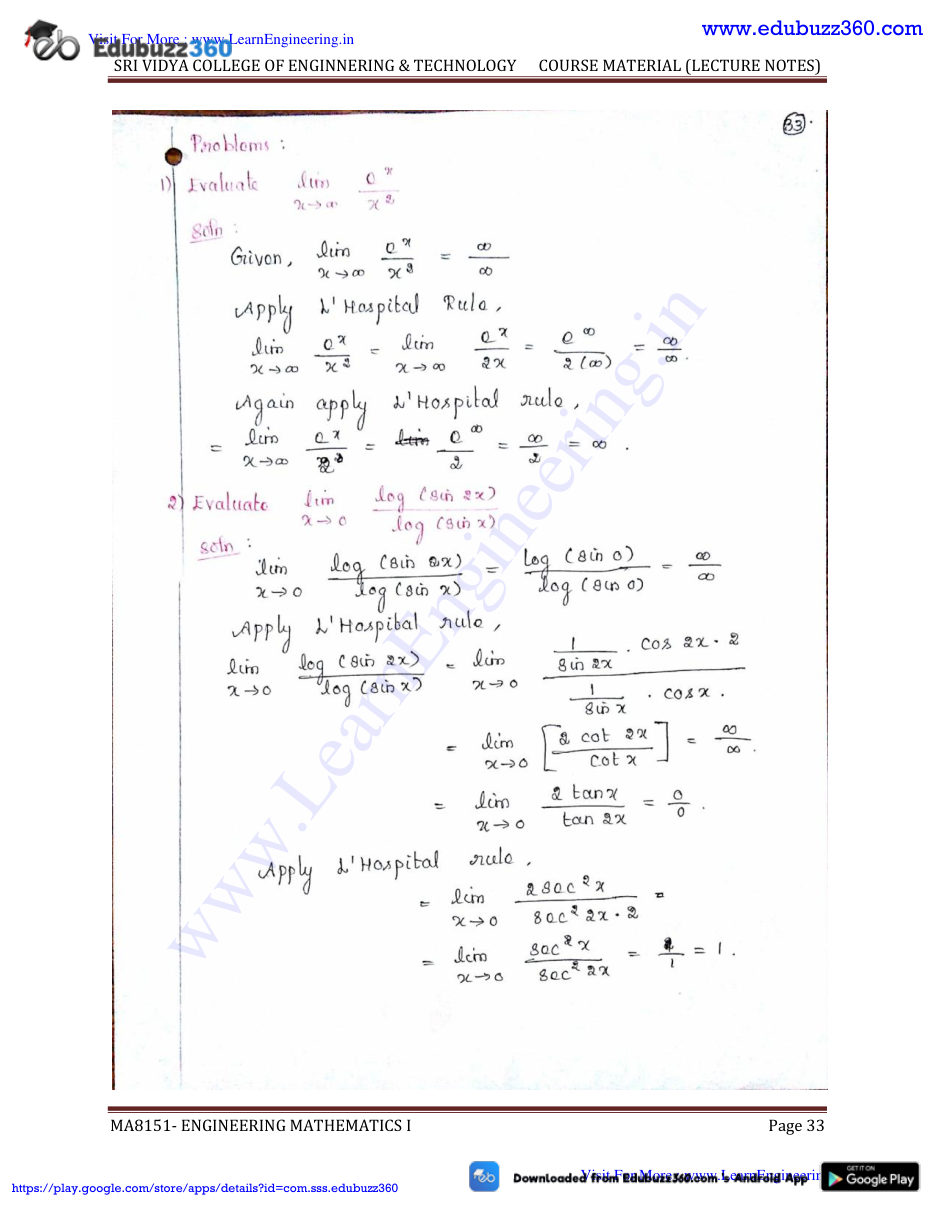 Visit For More : www.LearnEngineering.in
www.edubuzz360.com
Edubuzz360
SRI VIDYA COLLEGE OF ENGINNERING & TECHNOLOGY COURSE MATERIAL (LECTURE NOTES)
33.
Problems :
1) Evaluate lim x→∞ e^x / x^2
Soln :
Given, lim x→∞ e^x / x^2 = ∞/∞
Apply L'Hospital Rule,
lim x→∞ e^x / x^2 = lim x→∞ e^x / 2x = e^∞ / 2(∞) = ∞/∞.
Again apply L'Hospital rule,
= lim x→∞ e^x / 2 = e^∞ / 2 = ∞/2 = ∞ .
2) Evaluate lim x→0 log (sin 2x) / log (sin x)
Soln :
lim x→0 log (sin 2x) / log (sin x) = log (sin 0) / log (sin 0) = ∞/∞
Apply L'Hospital rule,
lim x→0 log (sin 2x) / log (sin x) = lim x→0 (1/sin 2x . cos 2x · 2) / (1/sin x . cosx .)
= lim x→0 [2 cot 2x / cot x] = ∞/∞.
= lim x→0 2 tanx / tan 2x = 0/0 .
Apply L'Hospital rule,
= lim x→0 2 sec^2 x / sec^2 2x · 2 =
= lim x→0 sec^2 x / sec^2 2x = 1/1 = 1 .
www.LearnEngineering.in
MA8151- ENGINEERING MATHEMATICS I Page 33
https://play.google.com/store/apps/details?id=com.sss.edubuzz360
Downloaded from EduBuzz360.com 's Android App
Visit For More : www.LearnEngineering.in
GET IT ON
Google Play